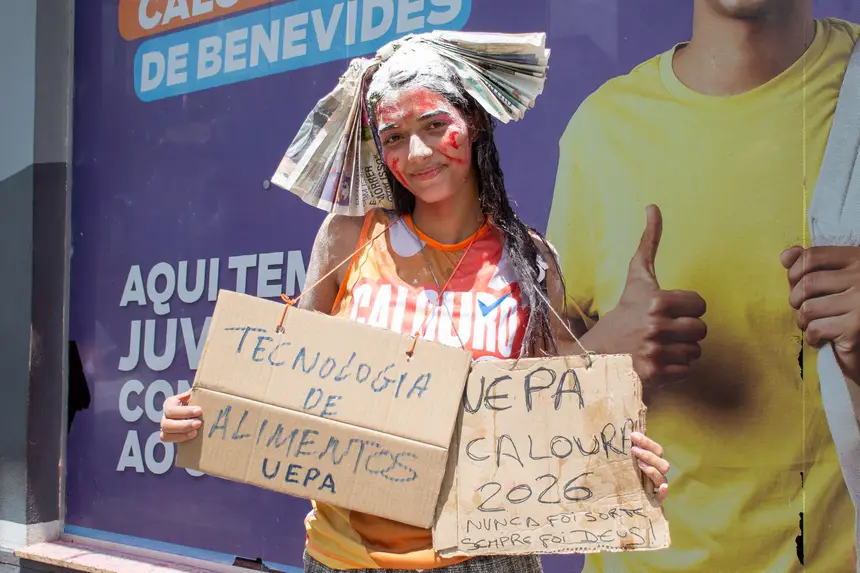 DE BENEVIDES
AQUI TEM
JUV
CO
AO
CALOURO
TECNOLOGIA
DE
ALIMENTOS
UEPA
UEPA
CALOURA
2026
NUNCA FOI SORTE
SEMPRE FOI DEUS!